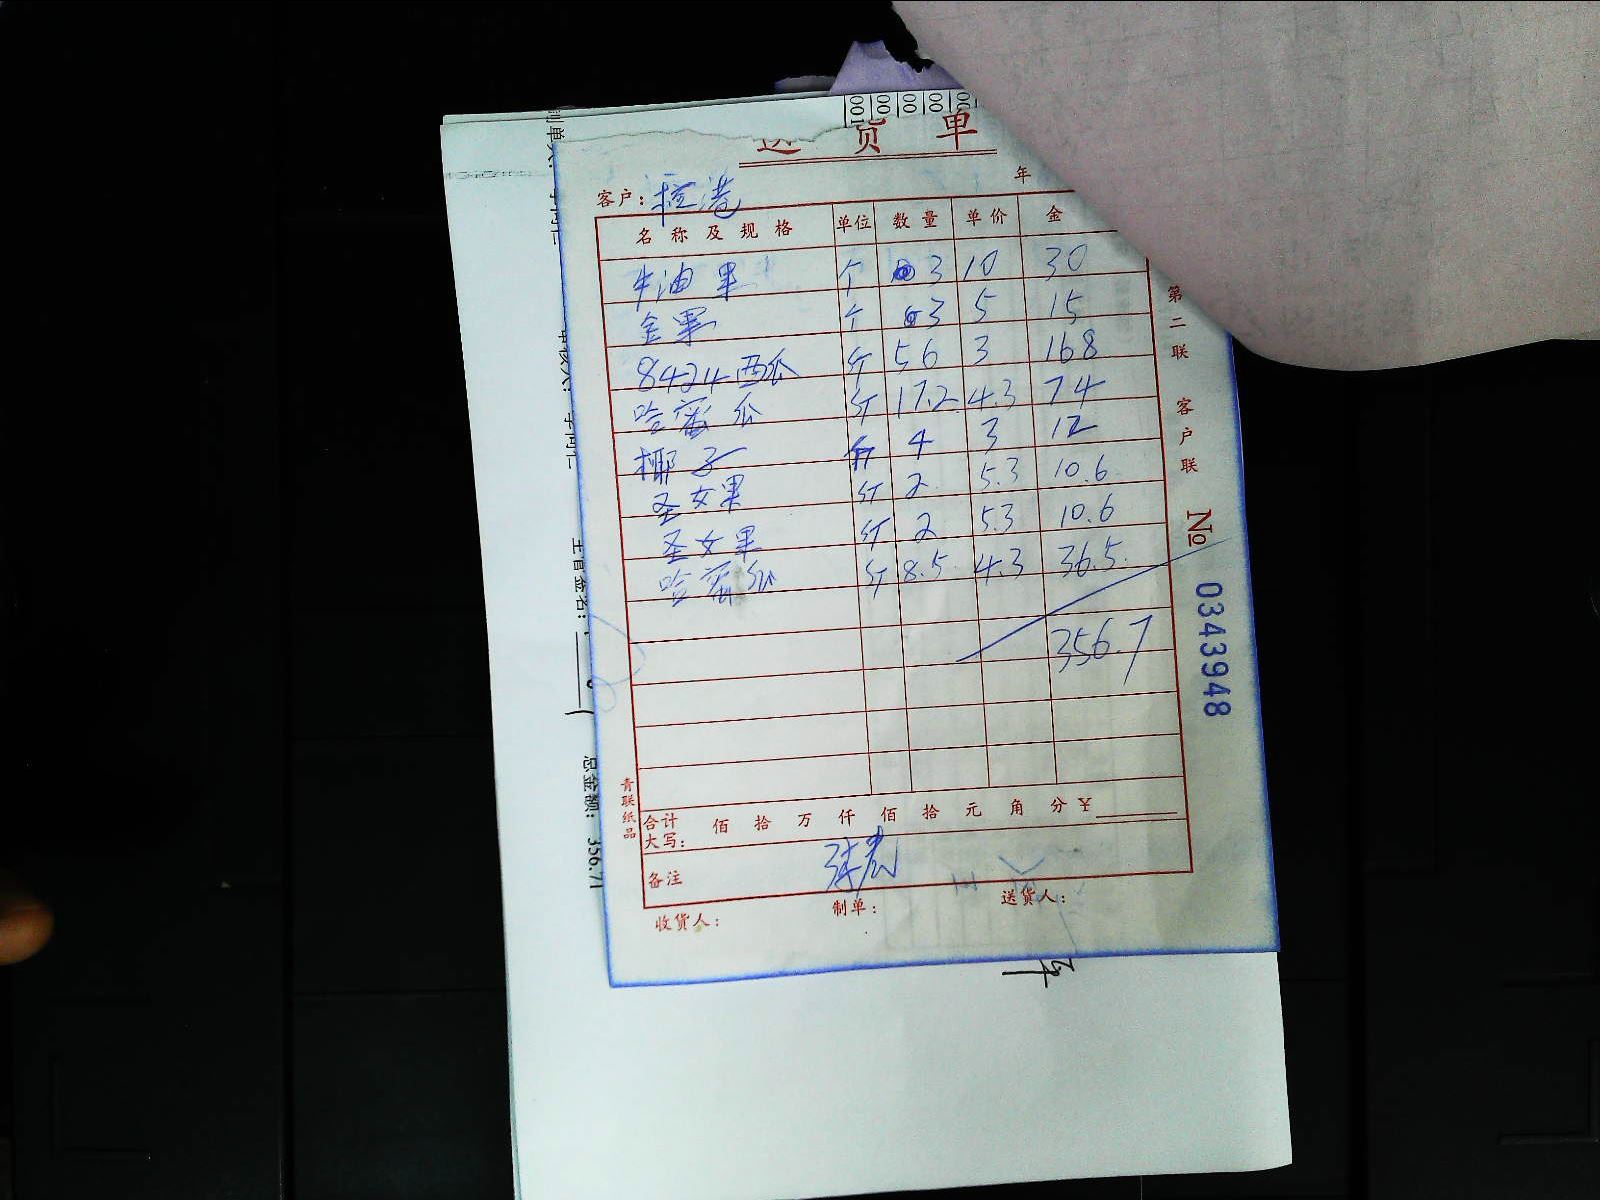 送货单
年
客户：控港
名称及规格 单位 数量 单价 金
牛油果 个 3 10 30
金果 个 3 5 15
8424西瓜 斤 56 3 168
哈密瓜 斤 17.2 4.3 74
椰子 个 4 3 12
圣女果 斤 2 5.3 10.6
圣女果 斤 2 5.3 10.6
哈密瓜 斤 8.5 4.3 36.5
356.7
合计大写： 佰 拾 万 仟 佰 拾 元 角 分 ¥
备注
收货人： 制单： 送货人：
第二联 客户联
№ 0343948
青联纸品
主管签名：
总金额： 356.71